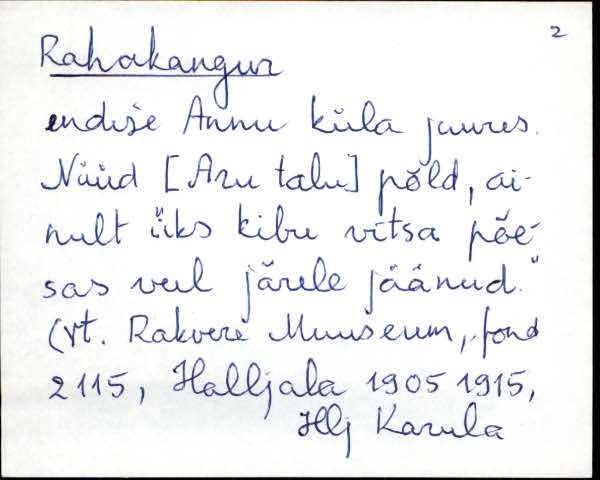 2
Rahakangur
endise Annu küla juures.
Nüüd [Aru talu] põld, ai-
nult üks kibu vitsa põe-
sas veel järele jäänud."
(vt. Rakvere Muuseum, fond
2115, Halljala 1905 1915,
Hlj Karula